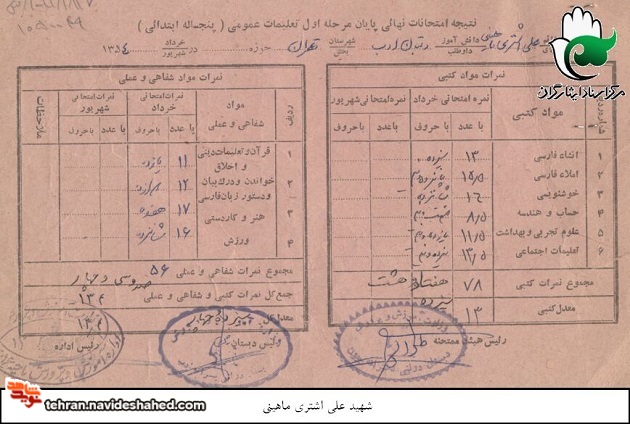 نتیجه امتحانات نهائی پایان مرحله اول تعلیمات عمومی ( پنجساله ابتدائی )
علی اشتری ماهینی دانش آموز داوطلب دبستان ادب شهرستان بخش تهران حوزه در خرداد شهریور
مرکز اسناد ایثارگران
نمرات مواد کتبی
مواد کتبی نمره امتحانی خرداد نمره امتحانی شهریور
با عدد با حروف با عدد با حروف
۱ انشاء فارسی ۱۳ سیزده
۲ املاء فارسی ۱۵/۵
۳ خوشنویسی ۱۶ شانزده
۴ حساب و هندسه ۸/۵
۵ علوم تجربی و بهداشت ۱۱/۵
۶ تعلیمات اجتماعی ۱۳/۵
مجموع نمرات کتبی ۷۸ هفتاد و هشت
معدل کتبی ۱۳ سیزده
رئیس هیئت ممتحنه
نمرات مواد شفاهی و عملی
ردیف مواد شفاهی و عملی نمرات امتحانی خرداد نمرات امتحانی شهریور ملاحظات
با عدد با حروف با عدد با حروف
۱ قرآن و تعلیمات دینی و اخلاق ۱۱ یازده
۲ خواندن و درک بیان و دستور زبان فارسی ۱۲
۳ هنر و کاردستی ۱۷ هفده
۴ ورزش ۱۶ شانزده
مجموع نمرات شفاهی و عملی ۵۶
جمع کل نمرات کتبی و شفاهی و عملی ۱۳۴ صد و سی و چهار
معدل کل
رئیس دبستان
رئیس اداره
نوید شاهد
tehran.navideshahed.com
شهید علی اشتری ماهینی